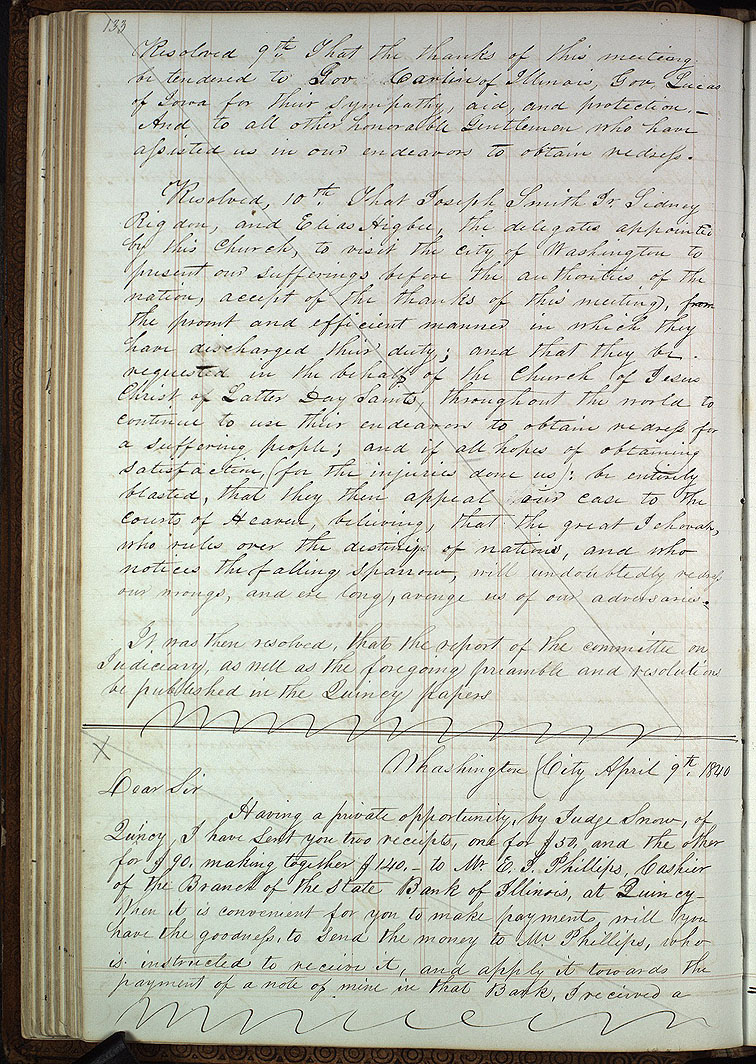 133
Resoloved 9th That the thanks of this meeting
be tendered to Gov. Carlin of Illinois, Gov. Lucas
of Iowa for their sympathy, aid, and protection.—
And to all other honorable Gentlemen who have
assisted us in our endeavors to obtain redress.
Resolved, 10th That Joseph Smith Jr. Sidney
Rigdon, and Elias Higbee, the delegates appointed
by this Church, to visit the city of Washington to
present our sufferings before the authorities of the
nation, accept of the thanks of this meeting, from
the promt and efficient manner in which they
have discharged their duty; and that they be
requested in the behalf of the Church of Jesus
Christ of Latter Day Saints, throughout the world to
continue to use their endeavors to obtain redress for
a suffering people; and if all hopes of obtaining
satisfaction, (for the injuries done us): be entirely
blasted, that they then appeal our case to the
Courts of Heaven, believing, that the great Jehovah,
who rules over the destiny of nations, and who
notices the falling sparrow, will undoubtedly redress
our wrongs, and ere long, avenge us of our adversaries.
It was then resolved, that the report of the committee on
Judiciary, as well as the foregoing preamble and resolutions
be published in the Quincy papers
X
Whashington City April 9th. 1840
Dear Sir
Having a private opportunity, by Judge Snow, of
Quincy, I have sent you two receipts, one for $50, and the other
for $90, making together $140.— to Mr. E. J. Phillips, Cashier
of the Branch of the State Bank of Illinois, at Quincy—
When it is convenient for you to make payments, will you
have the goodness, to send the money to Mr Phillips, who
is instructed to receive it, and apply it towards the
payment of a note of mine in that Bank, I received a